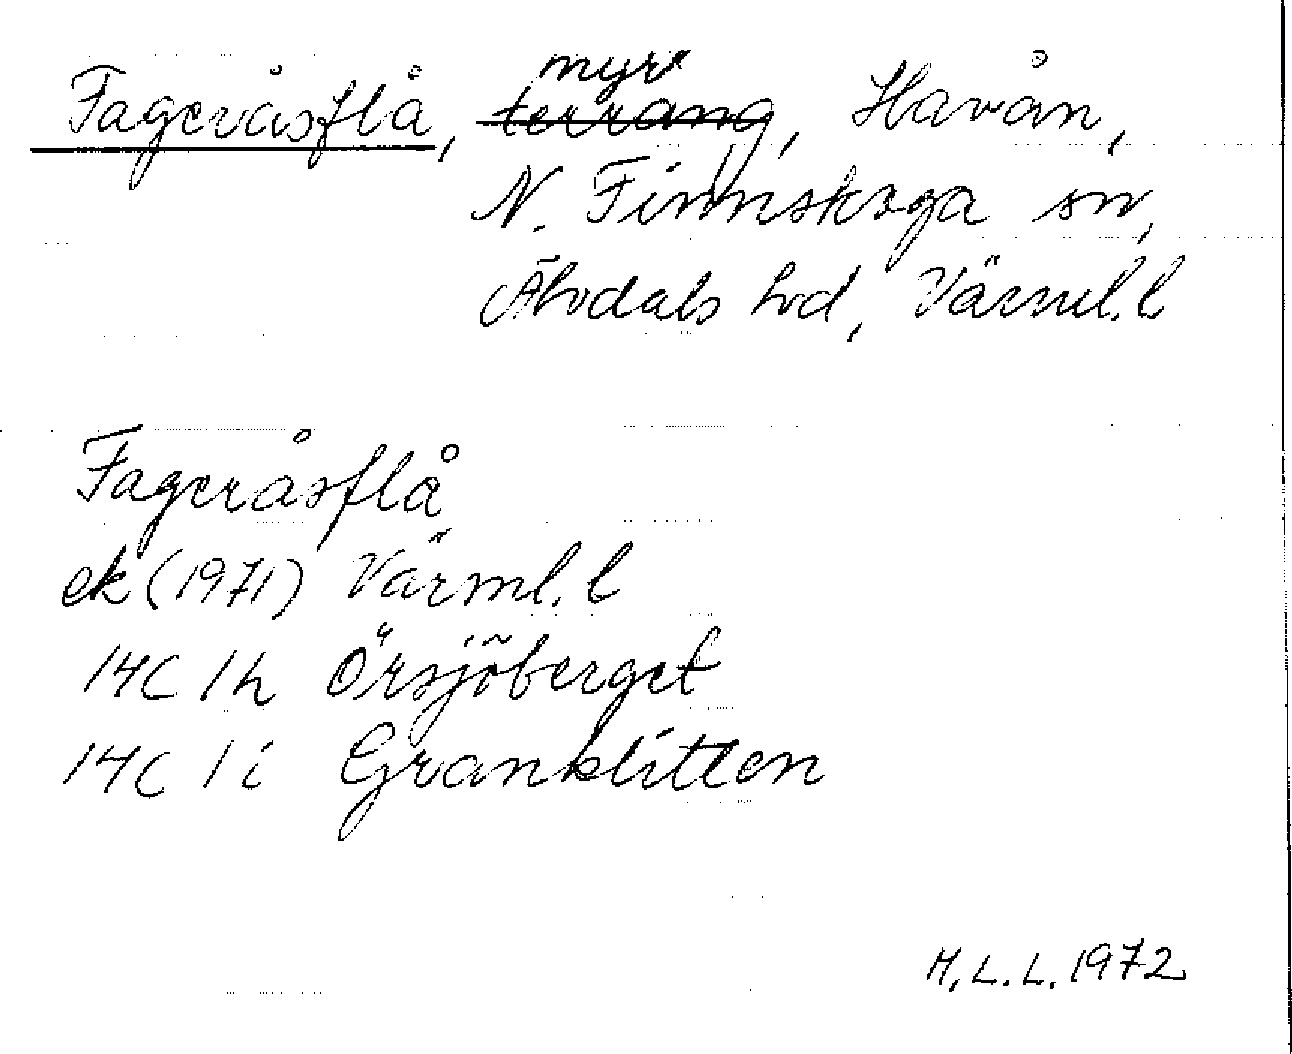 Fageråsflå, myr terräng, Havån,
N. Finnskoga sn,
Älvdals hd, Värml. l
Fageråsflå
ek (1971) Värml. l
14C 1h Örsjöberget
14C 1i Granklitten
M.L.L. 1972